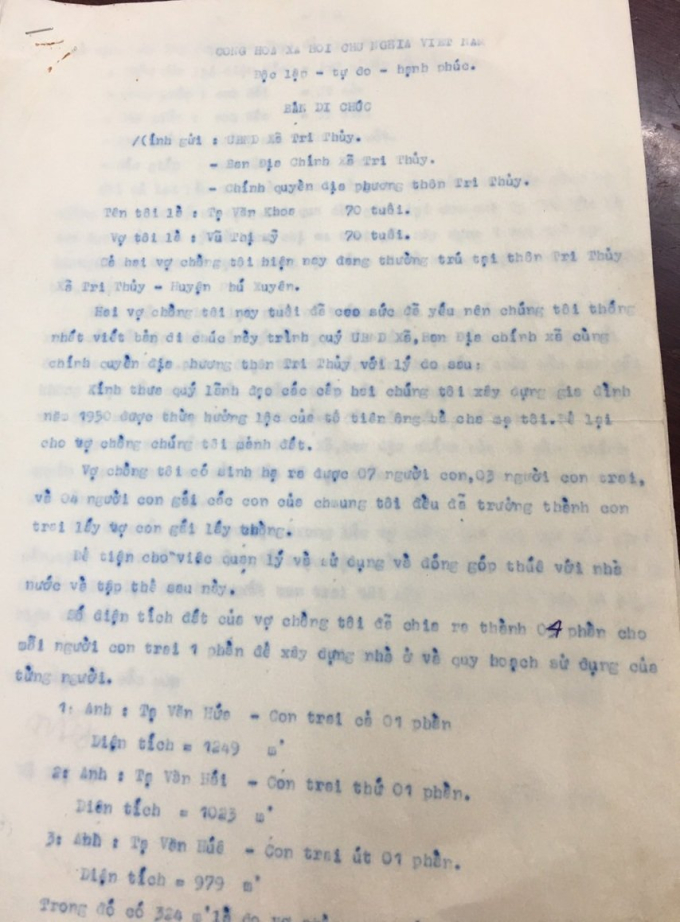 CỘNG HOÀ XÃ HỘI CHỦ NGHĨA VIỆT NAM
Độc lộc - tự do - hạnh phúc.
BẢN DI CHÚC
Kính gửi : UBND Xã Tri Thủy.
- Ban Địa Chính Xã Tri Thủy.
- Chính quyền địa phương thôn Tri Thủy.
Tên tôi là : Tạ Văn Khoa 70 tuổi.
Vợ tôi là : Vũ Thị Mỹ 70 tuổi.
Cả hai vợ chồng tôi hiện nay đang thường trú tại thôn Tri Thủy
Xã Tri Thủy - Huyện Phú Xuyên.
Hai vợ chồng tôi nay tuổi đã cao sức đã yếu nên chúng tôi thống
nhất viết bản di chúc này trình quý UBND Xã, Ban Địa chính xã cùng
chính quyền địa phương thôn Tri Thủy với lý do sau:
Kính thưa quý lãnh đạo các cấp hai chúng tôi xây dựng gia đình
năm 1950 được thừa hưởng lộc của tổ tiên ông bà cha mẹ tôi. Để lại
cho vợ chồng chúng tôi mảnh đất.
Vợ chồng tôi có sinh hạ ra được 07 người con, 03 người con trai,
và 04 người con gái các con của chaung tôi đều đã trưởng thành con
trai lấy vợ con gái lấy chồng.
Để tiện cho việc quản lý và sử dụng và đóng góp thuế với nhà
nước và tập thể sau này.
Số diện tích đất của vợ chồng tôi đã chia ra thành 04 phần cho
mỗi người con trai 1 phần để xây dựng nhà ở và quy hoạch sử dụng của
từng người.
1: Anh : Tạ Văn - Con trai cả 01 phần
Diện tích = 1249 m²
2: Anh : Tạ Văn - Con trai thứ 01 phần.
Diên tích = 1023 m²
3: Anh : Tạ Văn - Con trai út 01 phần.
Diện tích = 979 m²
Trong đó có 324 m² là do